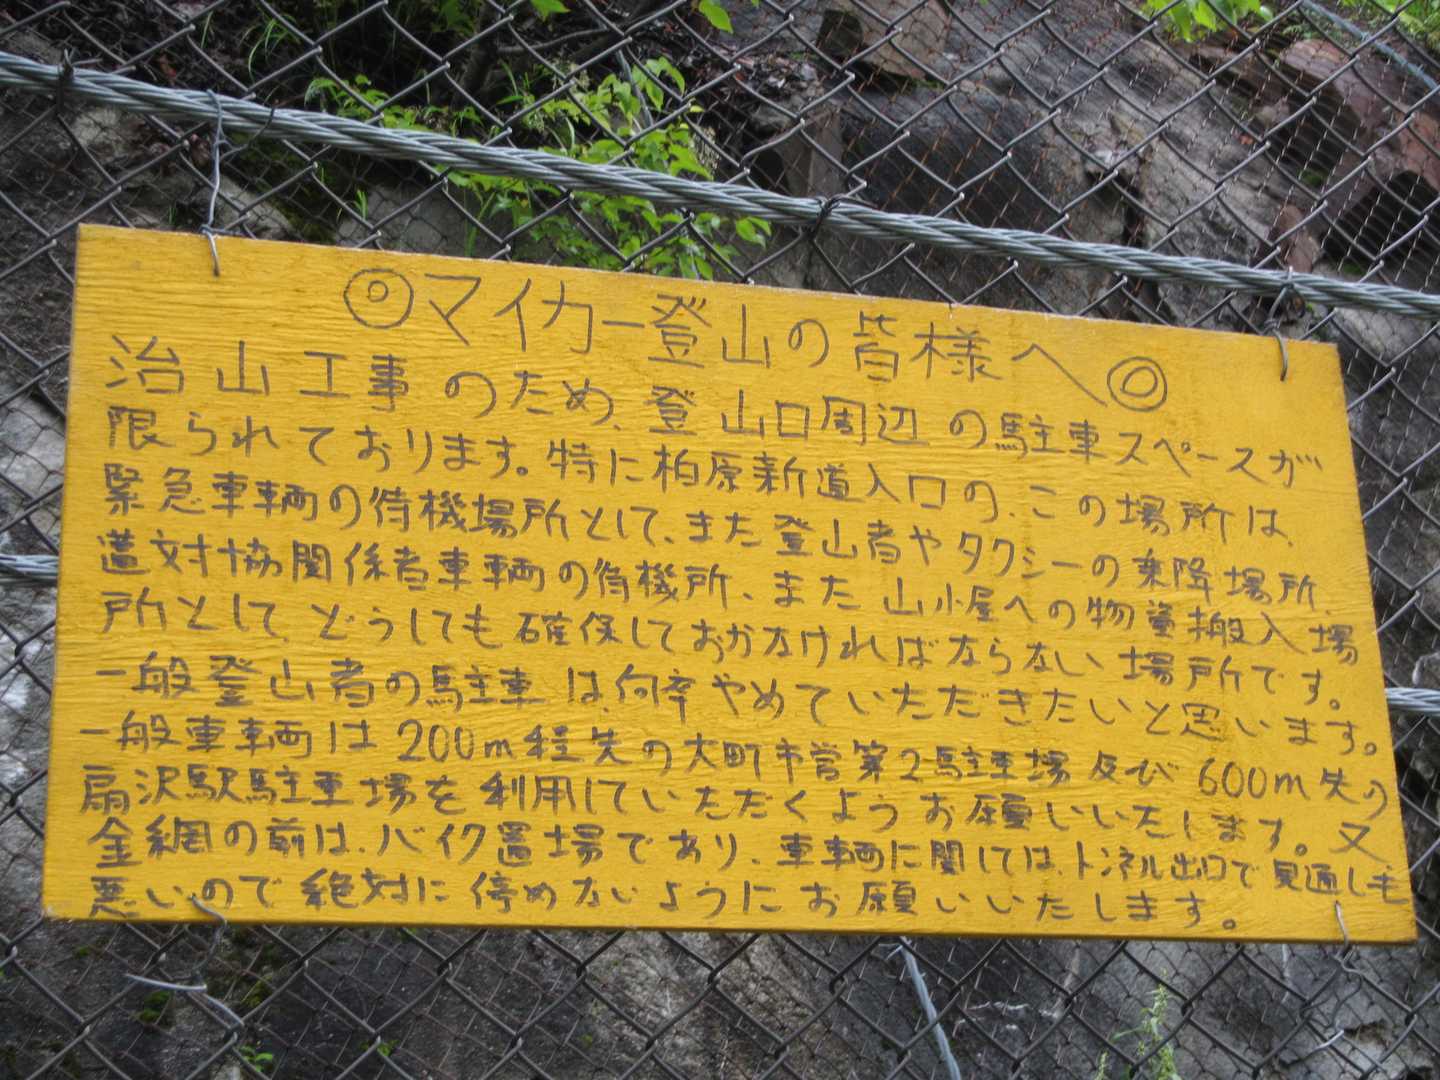 ◎マイカー登山の皆様へ◎
治山工事のため、登山口周辺の駐車スペースが
限られております。特に柏原新道入口の、この場所は、
緊急車輌の待機場所として、また登山者やタクシーの乗降場所、
遭対協関係者車輌の待機所、また山小屋への物資搬入場
所として、どうしても確保しておかなければならない場所です。
一般登山者の駐車は、何卒やめていただきたいと思います。
一般車輌は200m程先の大町市営第2駐車場及び600m先の
扇沢駅駐車場を利用していただくようお願いいたします。又
金網の前は、バイク置場であり、車輌に関しては、トンネル出口で見通しも
悪いので絶対に停めないようにお願いいたします。